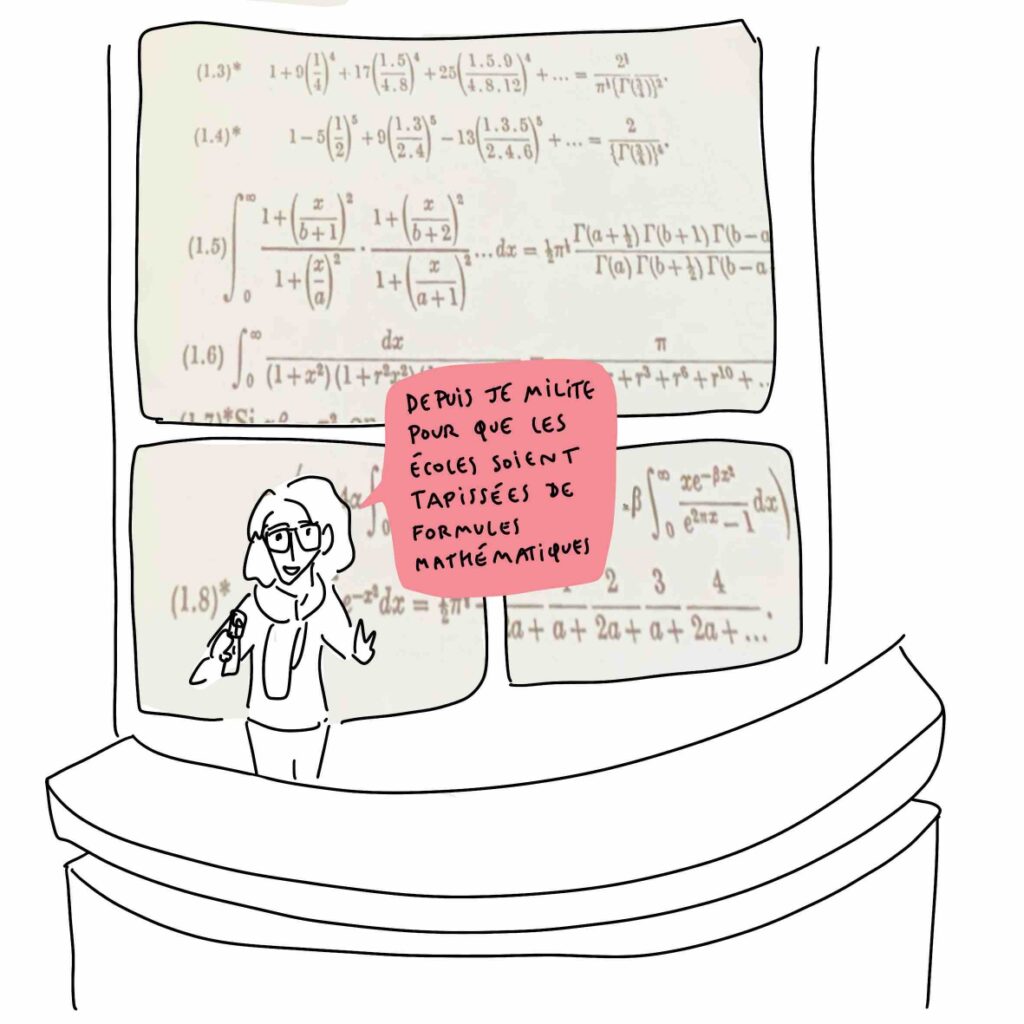 (1.3)* 1+9(1/4)^4+17(1.5/4.8)^4+25(1.5.9/4.8.12)^4+...=
(1.4)* 1-5(1/2)^5+9(1.3/2.4)^5-13(1.3.5/2.4.6)^5+...=2/{Γ(¾)}^4.
(1.5) ∫_0^∞ (1+(x/(b+1))^2)/(1+(x/a)^2) · (1+(x/(b+2))^2)/(1+(x/(a+1))^2)...dx=½π^½ Γ(a+½)Γ(b+1)Γ(b-a/Γ(a)Γ(b+½)Γ(b-a
(1.6) ∫_0^∞ dx/(1+x^2)(1+r^2x^2)( = π/+r^3+r^6+r^10+..
DEPUIS JE MILITE
POUR QUE LES
ÉCOLES SOIENT
TAPISSÉES DE
FORMULES
MATHÉMATIQUES
β∫_0^∞ xe^{-βx^2}/(e^{2πx}-1)dx)
(1.8)* e^{-x^2}dx=½π^½-
2a+ a+ 2/2a+ 3/a+ 4/2a+...